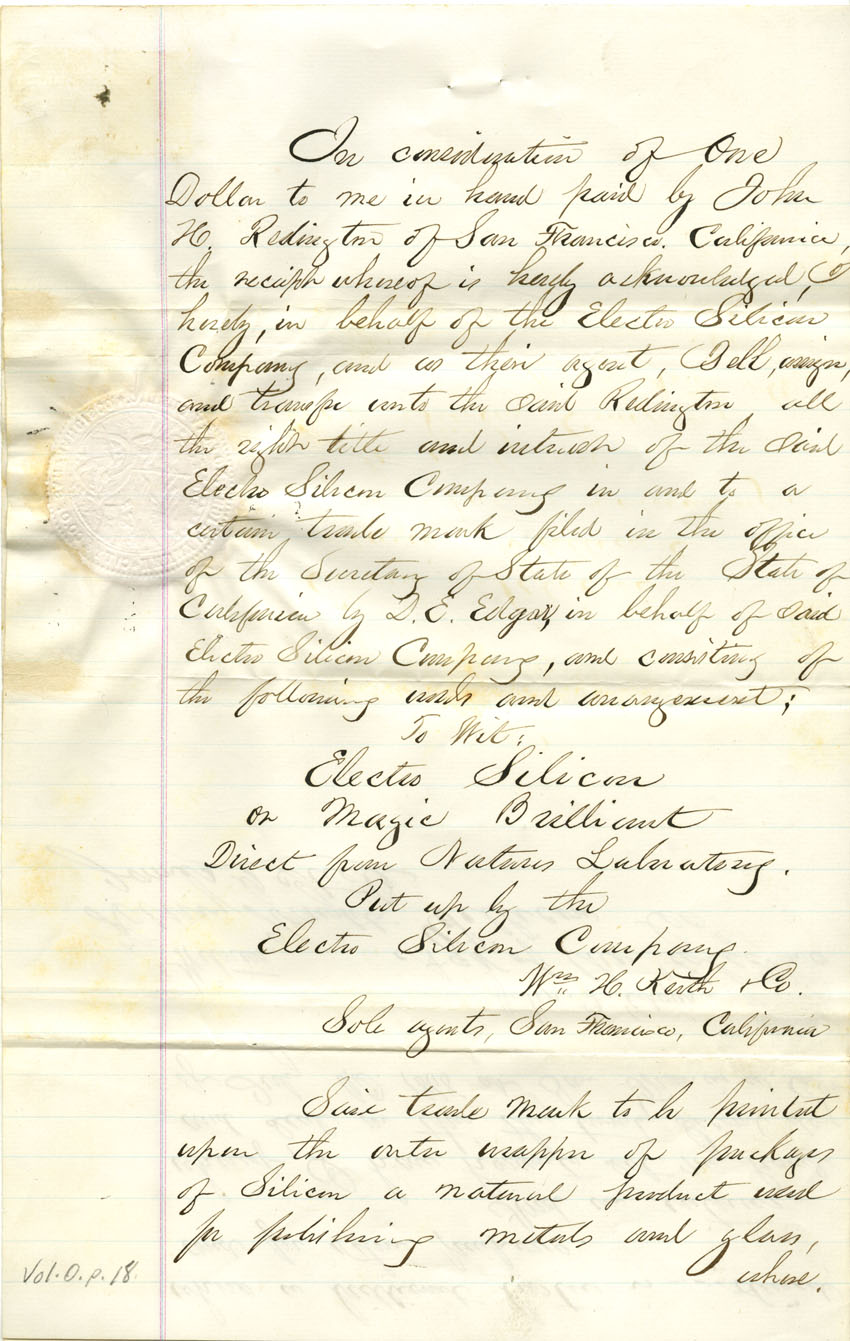 In consideration of One
Dollar to me in hand paid by John
H. Redington of San Francisco. California,
the receipt whereof is hereby acknowledged, I
hereby, in behalf of the Electro Silicon
Company, and as their agent, Sell, assign,
and transfer unto the said Redington all
the right title and interest of the said
Electro Silicon Company in and to a
certain trade mark filed in the office
of the Secretary of State of the State of
California by D. E. Edgar, in behalf of said
Electro Silicon Company, and consisting of
the following words and arrangement;
To Wit:
Electro Silicon
or Magic Brilliant
Direct from Natures Labratory.
Put up by the
Electro Silicon Company.
Wm H. Keith & Co.
Sole agents, San Francisco, California
Said trade mark to be printed
upon the outer wrapper of packages
of Silicon a natural product used
for polishing metals and glass,
Vol. O. p. 18.